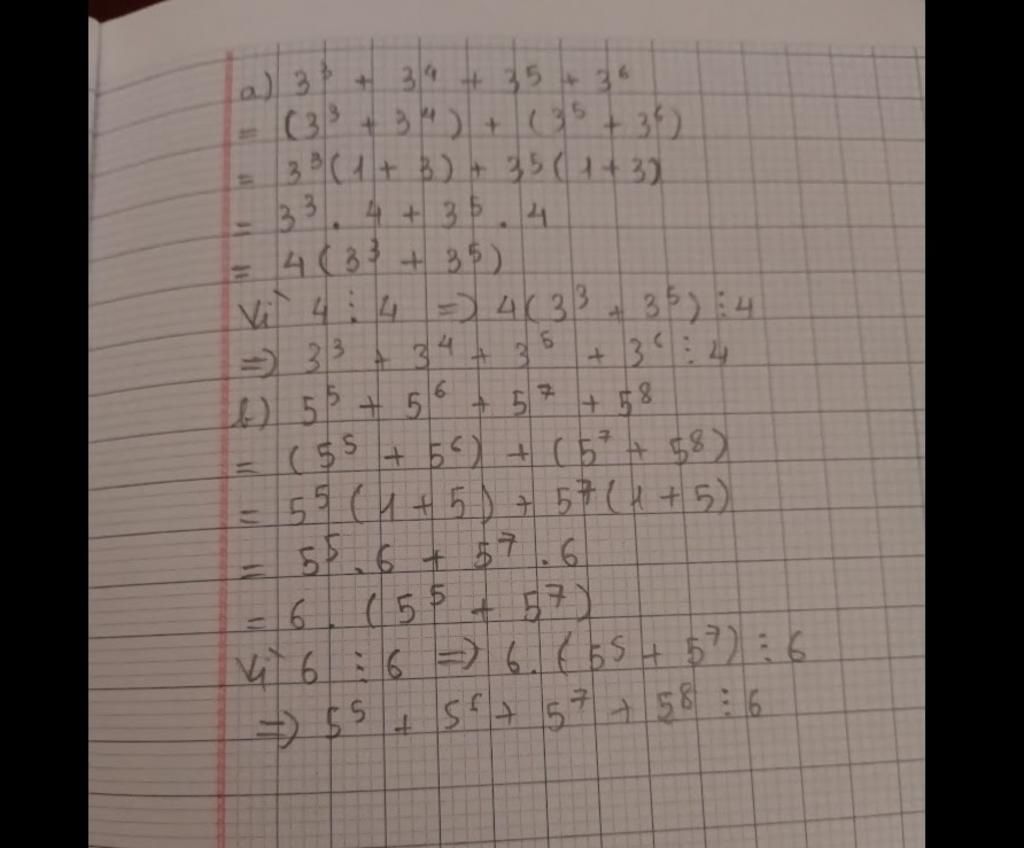 a) 3³ + 3⁴ + 3⁵ + 3⁶
= (3³ + 3⁴) + (3⁵ + 3⁶)
= 3³(1 + 3) + 3⁵(1 + 3)
= 3³ . 4 + 3⁵ . 4
= 4(3³ + 3⁵)
Vì 4 ⋮ 4 => 4(3³ + 3⁵) ⋮ 4
=> 3³ + 3⁴ + 3⁵ + 3⁶ ⋮ 4
b) 5⁵ + 5⁶ + 5⁷ + 5⁸
= (5⁵ + 5⁶) + (5⁷ + 5⁸)
= 5⁵(1 + 5) + 5⁷(1 + 5)
= 5⁵ . 6 + 5⁷ . 6
= 6 . (5⁵ + 5⁷)
Vì 6 ⋮ 6 => 6 . (5⁵ + 5⁷) ⋮ 6
=> 5⁵ + 5⁶ + 5⁷ + 5⁸ ⋮ 6